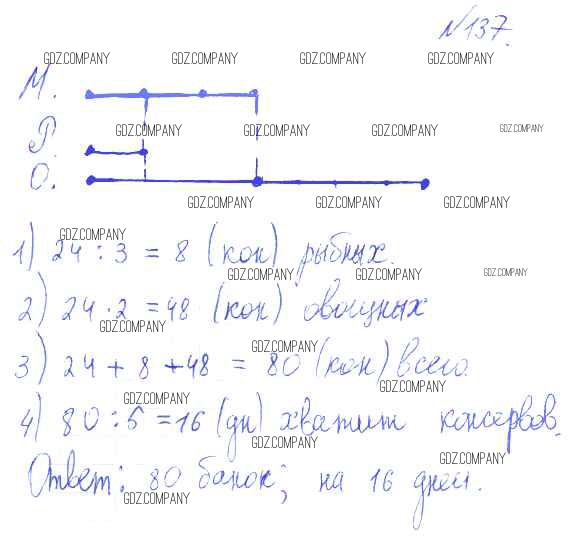 №137.
GDZ.COMPANY GDZ.COMPANY GDZ.COMPANY GDZ.COMPANY
М.
GDZ.COMPANY GDZ.COMPANY GDZ.COMPANY GDZ.COMPANY
Р.
О.
GDZ.COMPANY GDZ.COMPANY GDZ.COMPANY
GDZ.COMPANY
1) 24 : 3 = 8 (кон) рыбных.
GDZ.COMPANY GDZ.COMPANY GDZ.COMPANY
2) 24 · 2 = 48 (кон) овощных
GDZ.COMPANY
GDZ.COMPANY
3) 24 + 8 + 48 = 80 (кон) всего.
GDZ.COMPANY GDZ.COMPANY
4) 80 : 5 = 16 (дн) хватит консервов.
GDZ.COMPANY
GDZ.COMPANY
Ответ: 80 банок; на 16 дней.
GDZ.COMPANY